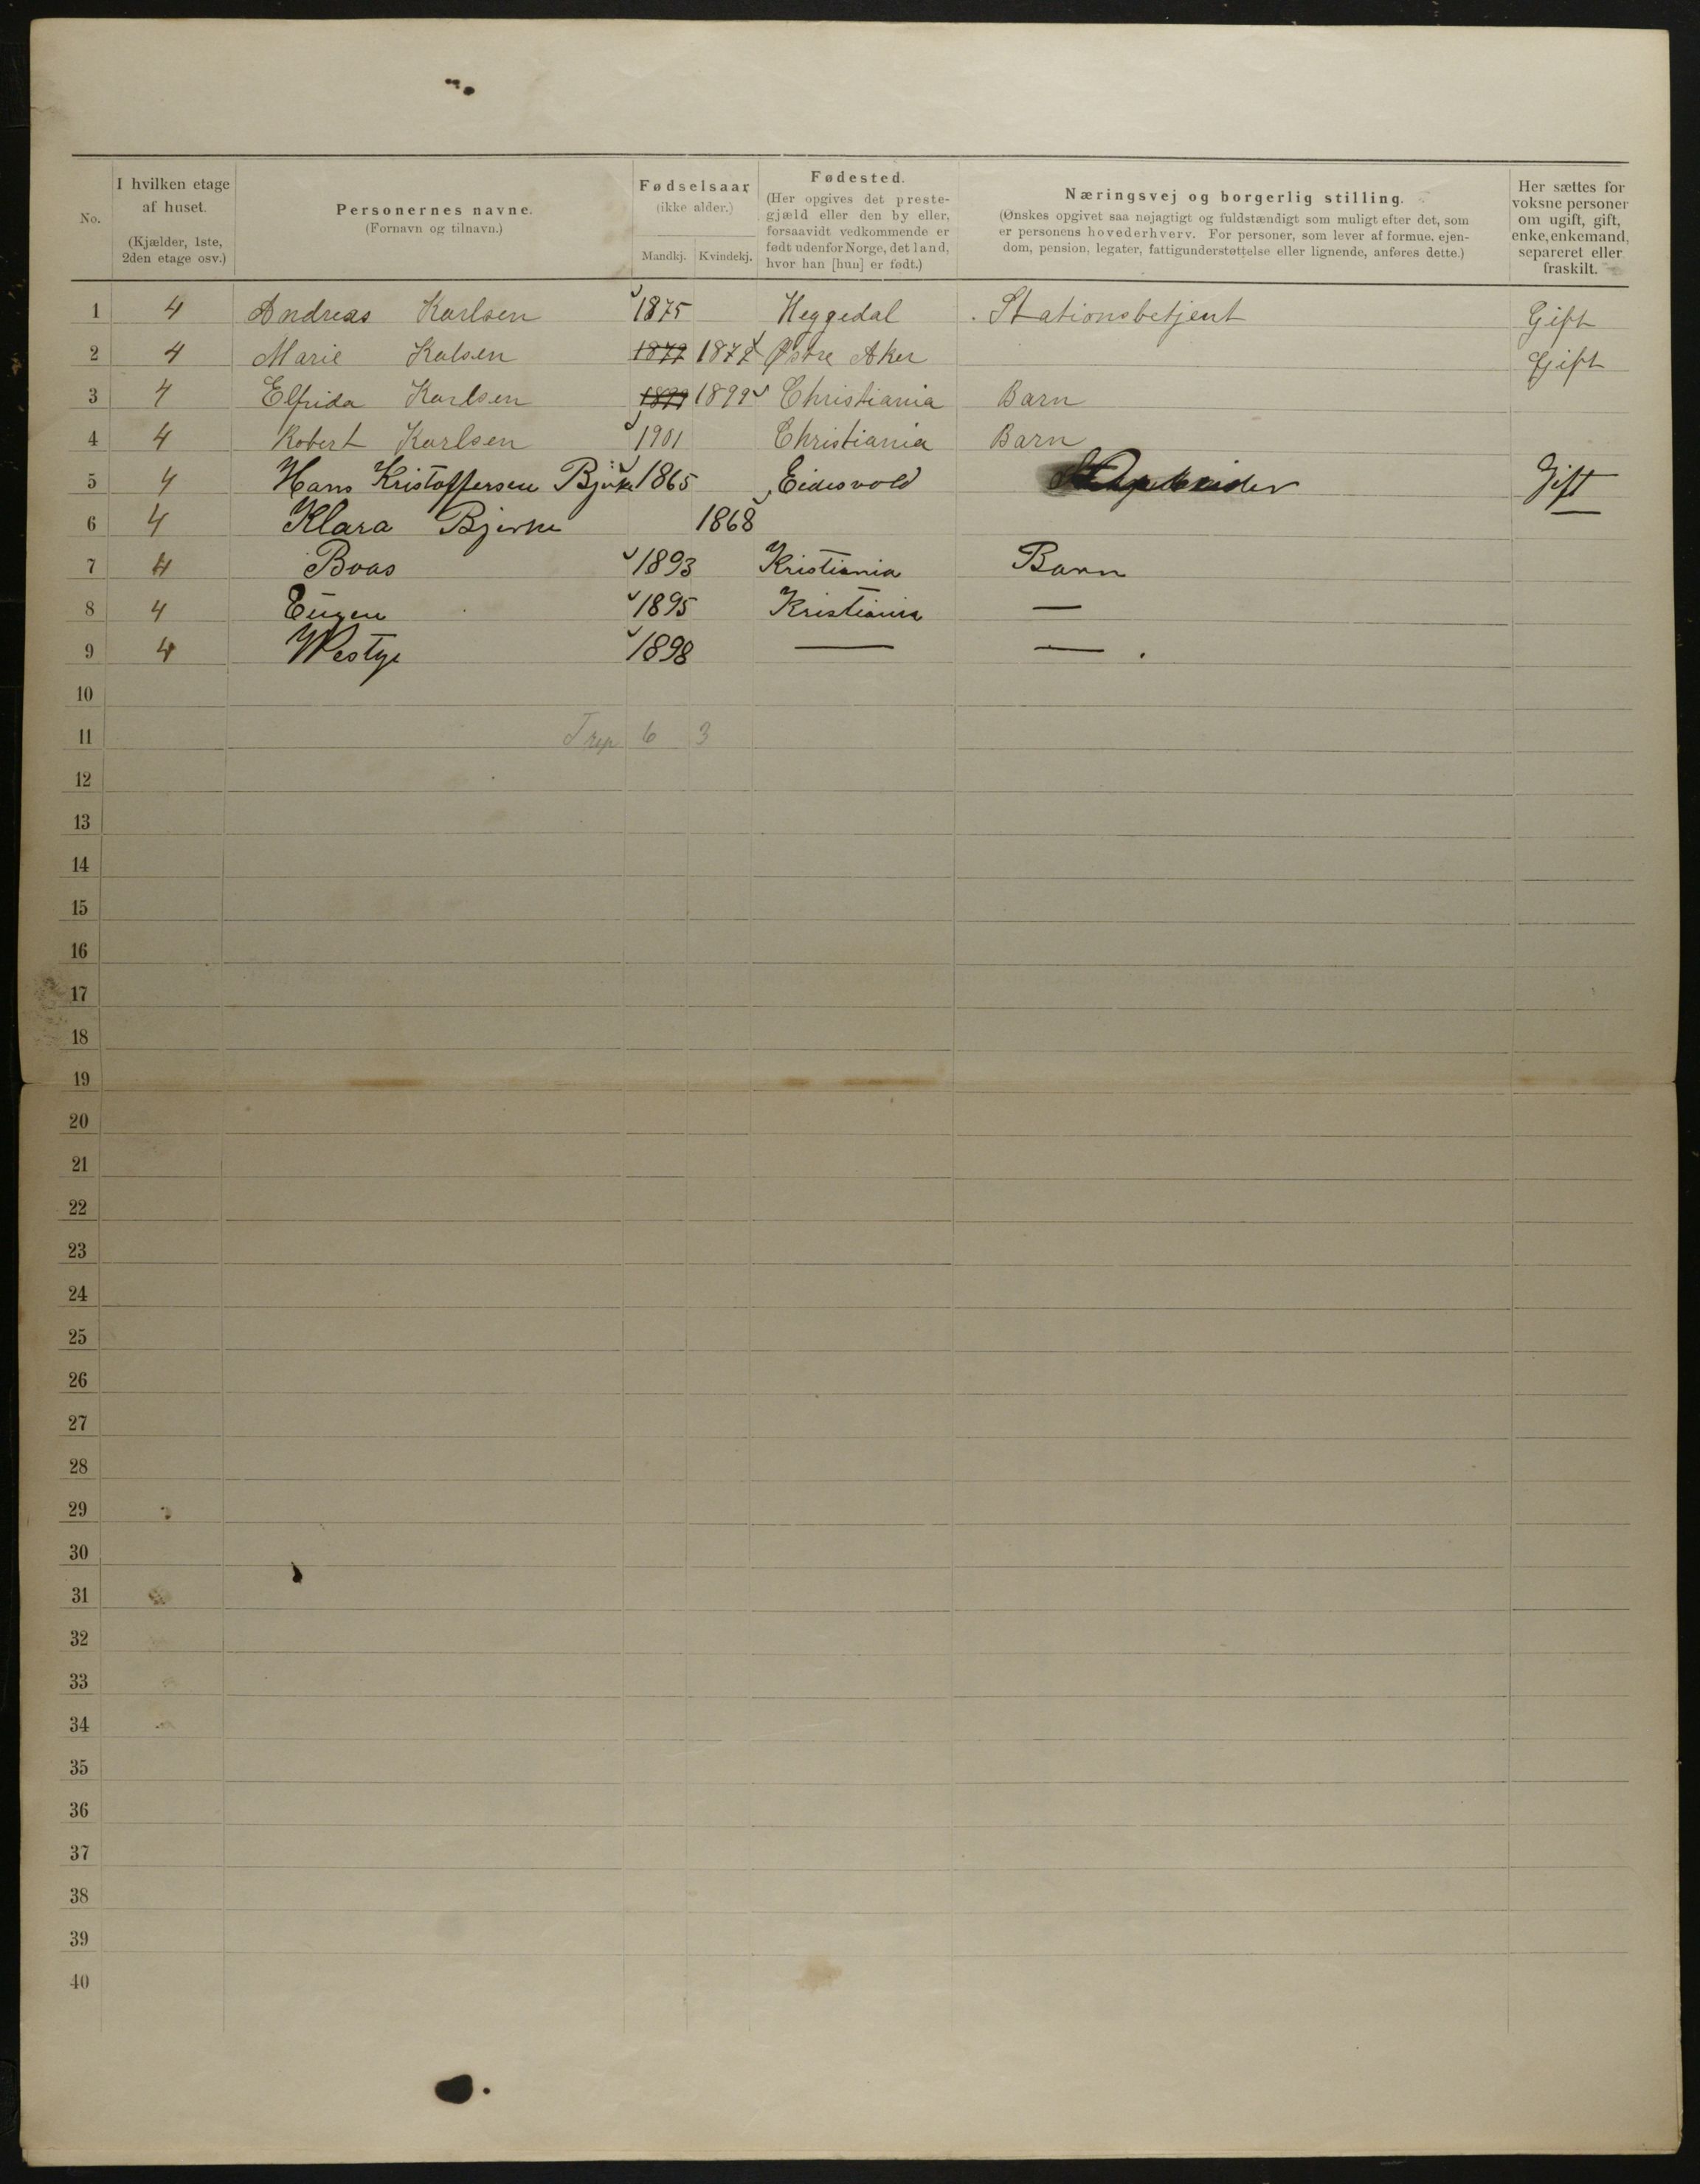 No.
I hvilken etage af huset.
(Kjælder, 1ste, 2den etage osv.)
Personernes navne.
(Fornavn og tilnavn.)
Fødselsaar
(ikke alder.)
Mandkj. Kvindekj.
Fødested.
(Her opgives det preste-
gjæld eller den by eller,
forsaavidt vedkommende er
født udenfor Norge, det land,
hvor han [hun] er født.)
Næringsvej og borgerlig stilling.
(Ønskes opgivet saa nøjagtigt og fuldstændigt som muligt efter det, som
er personens hovederhverv. For personer, som lever af formue, ejen-
dom, pension, legater, fattigunderstøttelse eller lignende, anføres dette.)
Her sættes for
voksne personer
om ugift, gift,
enke, enkemand,
separeret eller
fraskilt.
1 4 Andreas Karlsen 1875 Heggedal Stationsbetjent Gift
2 4 Marie Kalsen 1877 1877 Østre Aker Gift
3 4 Elfrida Karlsen 1899 1899 Christiania Barn
4 4 Robert Karlsen 1901 Christiania Barn
5 4 Hans Kristoffersen Bjerke 1865 Eidesvold Gift
6 4 Klara Bjerke 1868
7 4 Boas 1893 Kristiania Barn
8 4 Eugen 1895 Kristiania —
9 4 Westye 1898 — —
10
11 6 3
12
13
14
15
16
17
18
19
20
21
22
23
24
25
26
27
28
29
30
31
32
33
34
35
36
37
38
39
40